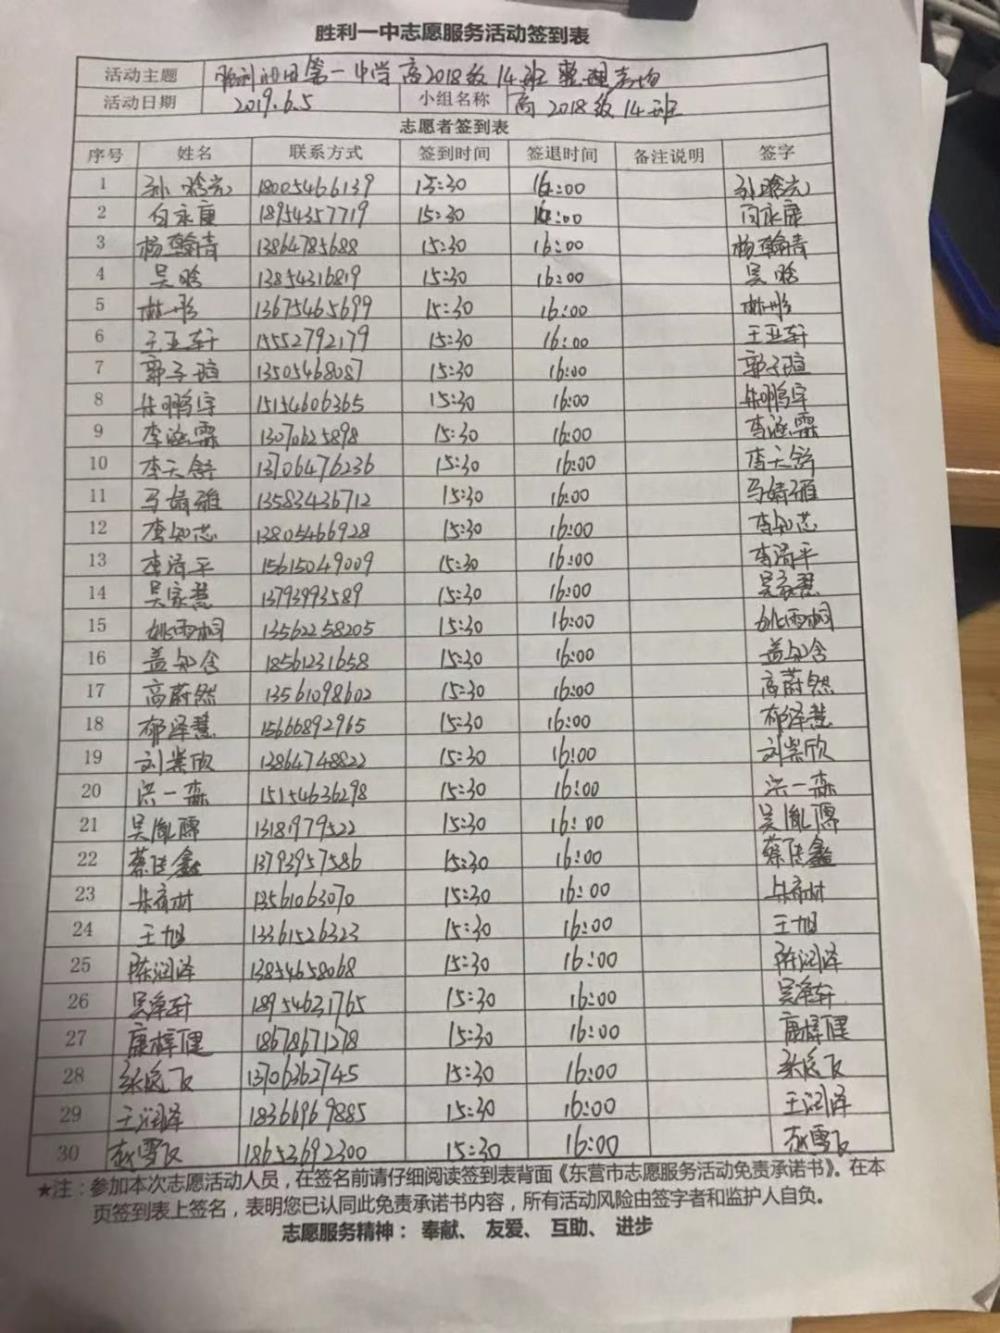 胜利一中志愿服务活动签到表
活动主题 胜利油田第一中学高2018级14班整理考场
活动日期 2019.6.5 小组名称 高2018级14班
志愿者签到表
序号 姓名 联系方式 签到时间 签退时间 备注说明 签字
1 18005466139 15:30 16:00
2 向永康 18954357719 15:30 16:00 向永康
3 杨瀚青 13864785688 15:30 16:00 杨瀚青
4 吴晗 13854316819 15:30 16:00 吴晗
5 林彤 13675465699 15:30 16:00 林彤
6 王亚轩 15552792179 15:30 16:00 王亚轩
7 郭子瑄 13505468087 15:30 16:00 郭子瑄
8 朱鹏宇 15154606365 15:30 16:00 朱鹏宇
9 李涵霖 1307625898 15:30 16:00 李涵霖
10 李天舒 13706476236 15:30 16:00 李天舒
11 马婧雅 13583436712 15:30 16:00 马婧雅
12 李知芯 13805466928 15:30 16:00 李知芯
13 李清平 15615049009 15:30 16:00 李清平
14 吴家慧 13793993589 15:30 16:00 吴家慧
15 姚雨桐 13562258205 15:30 16:00 姚雨桐
16 盖知含 18561231658 15:30 16:00 盖知含
17 高蔚然 13561098602 15:30 16:00 高蔚然
18 郁泽慧 15666892965 15:30 16:00 郁泽慧
19 刘崇欣 13864748822 15:30 16:00 刘崇欣
20 洪一森 15154636298 15:30 16:00 洪一森
21 吴胤儒 13181979522 15:30 16:00 吴胤儒
22 蔡佳鑫 13793957586 15:30 16:00 蔡佳鑫
23 13561063070 15:30 16:00
24 王旭 13361526323 15:30 16:00 王旭
25 陈润泽 13854658068 15:30 16:00 陈润泽
26 18954631765 15:30 16:00
27 康梓健 18678671278 15:30 16:00 康梓健
28 13706362745 15:30 16:00
29 王润泽 18366969885 15:30 16:00 王润泽
30 赵雪飞 18653692300 15:30 16:00 赵雪飞
★注：参加本次志愿活动人员，在签名前请仔细阅读签到表背面《东营市志愿服务活动免责承诺书》。在本
页签到表上签名，表明您已认同此免责承诺书内容，所有活动风险由签字者和监护人自负。
志愿服务精神： 奉献、 友爱、 互助、 进步